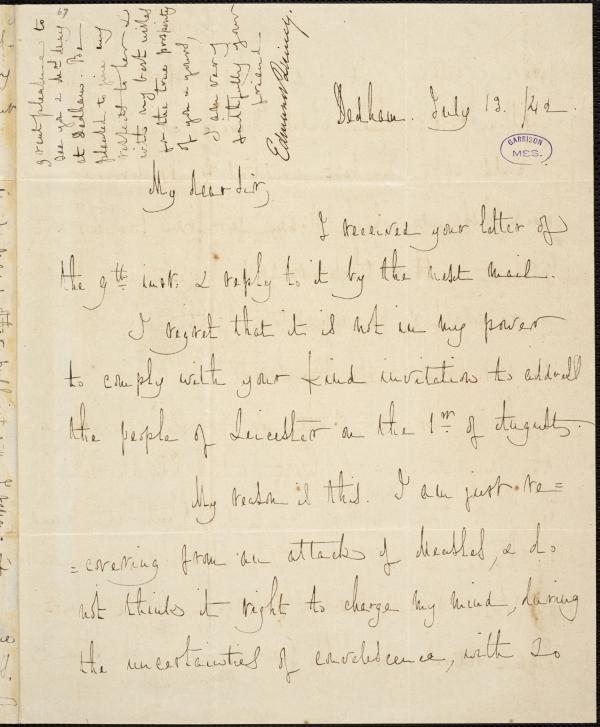 Dedham. July 12. /42.
GARRISON
MSS.
My dear Sir,
I received your letter of
the 9th inst: & reply to it by the next mail.
I regret that it is not in my power
to comply with your kind invitation to address
the people of Leicester on the 1st of August.
My reason is this. I am just re=
=covering from an attack of Measles, & do
not think it right to charge my mind, during
the uncertainties of convalescence, with so
67
great pleasure to
see you & had they
at Dedham. Be
pleased to give my
respects to her &
with my best wishes
for the true prosperity
of you & yours,
I am very
faithfully your
friend
Edmund Quincy.